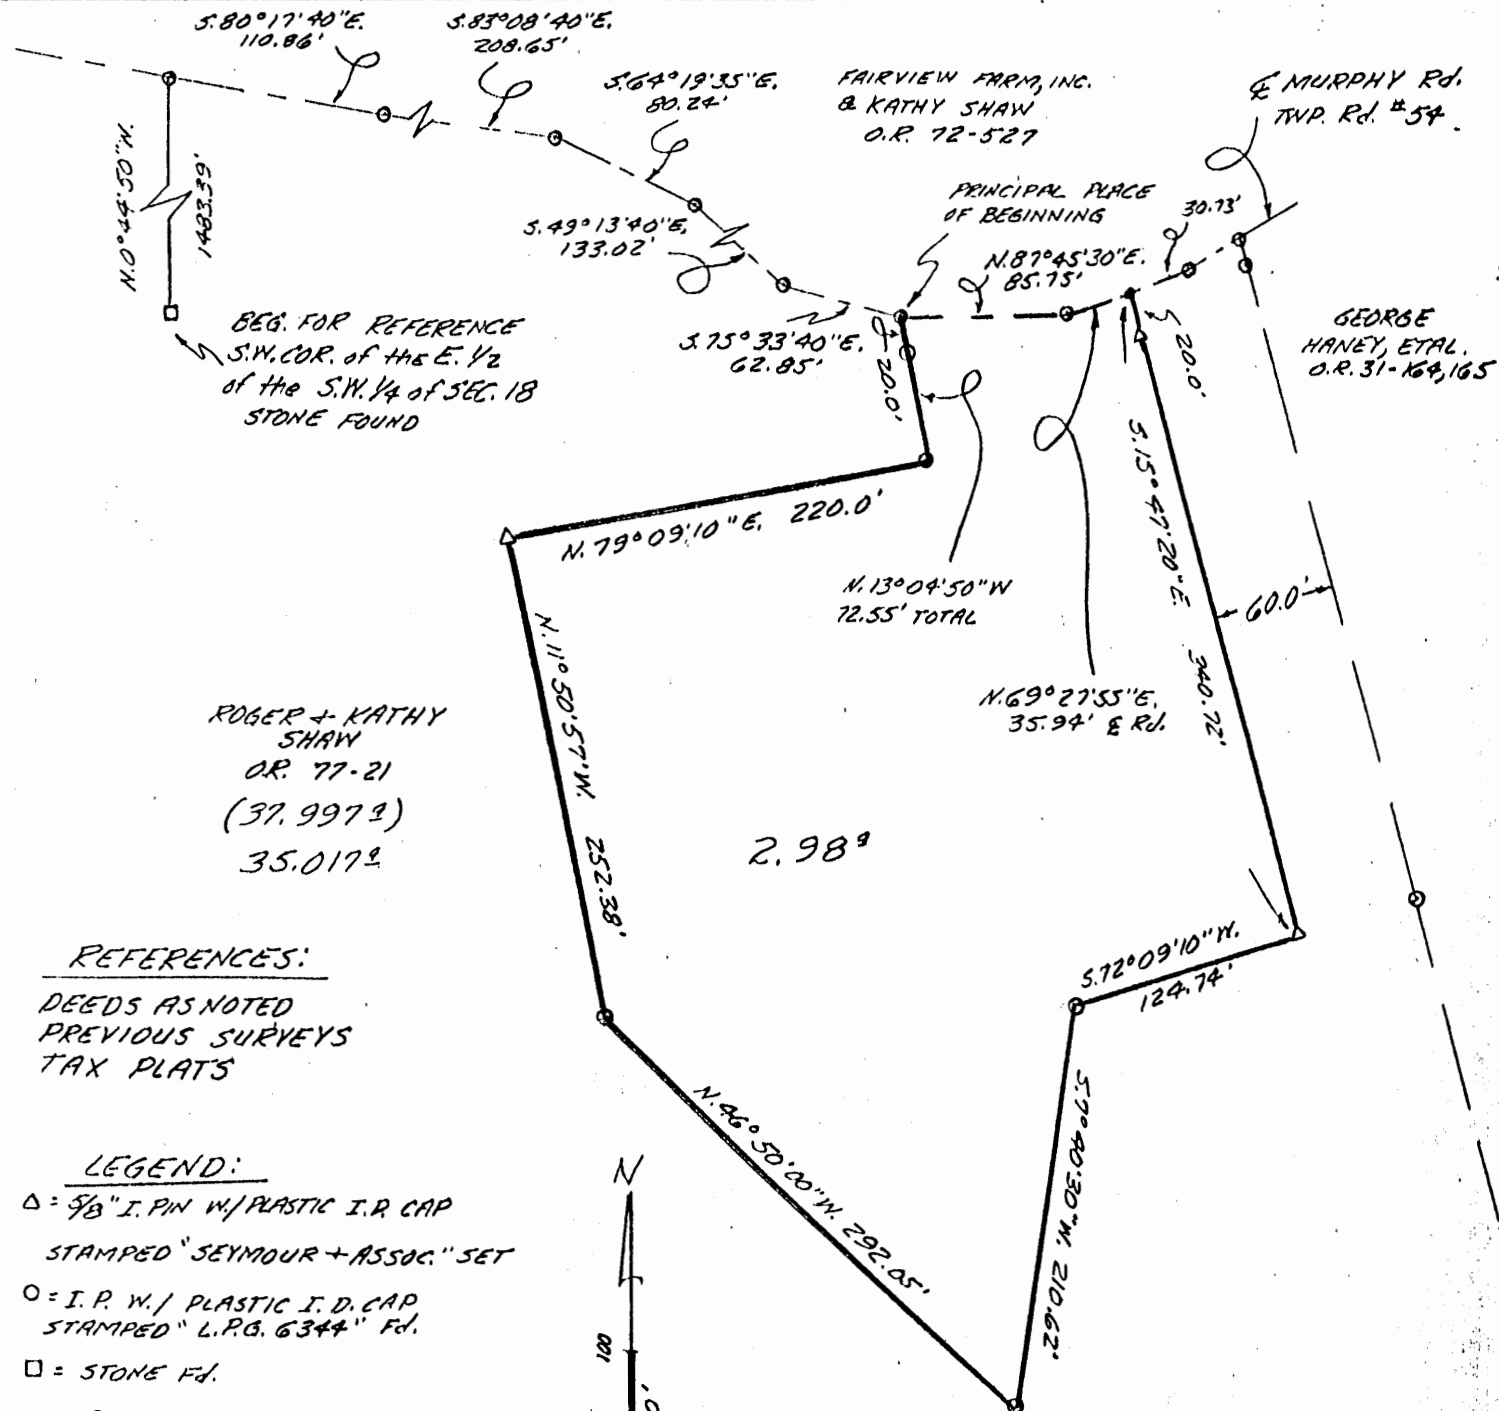 S.80°17'40"E.
110.86'
S.83°08'40"E.
208.65'
S.64°19'35"E.
80.24'
FAIRVIEW FARM, INC.
& KATHY SHAW
O.R. 72-527
℄ MURPHY Rd.
TWP. Rd. #54.
N.0°44'50"W.
1483.39'
S.49°13'40"E.
133.02'
PRINCIPAL PLACE
OF BEGINNING
30.73'
N.87°45'30"E.
85.75'
BEG. FOR REFERENCE
S.W. COR. of the E. 1/2
of the S.W. 1/4 of SEC. 18
STONE FOUND
S.75°33'40"E.
62.85'
20.0'
20.0'
GEORGE
HANEY, ETAL.
O.R. 31-164,165
N.79°09'10"E. 220.0'
N.13°04'50"W
72.55' TOTAL
S.15°47'20"E. 340.72'
60.0'
N.69°27'55"E.
35.94' ℄ Rd.
N.11°50'57"W. 252.38'
ROGER + KATHY
SHAW
O.R. 77-21
(37.997ª)
35.017ª
2.98ª
S.72°09'10"W.
124.74'
REFERENCES:
DEEDS AS NOTED
PREVIOUS SURVEYS
TAX PLATS
N.46°50'00"W. 292.05'
S.7°40'30"W. 210.62'
LEGEND:
△ = 5/8" I. PIN W/ PLASTIC I.D. CAP
STAMPED "SEYMOUR + ASSOC." SET
O = I.P. W./ PLASTIC I.D. CAP
STAMPED "L.P.G. 6344" Fd.
□ = STONE Fd.
N
100